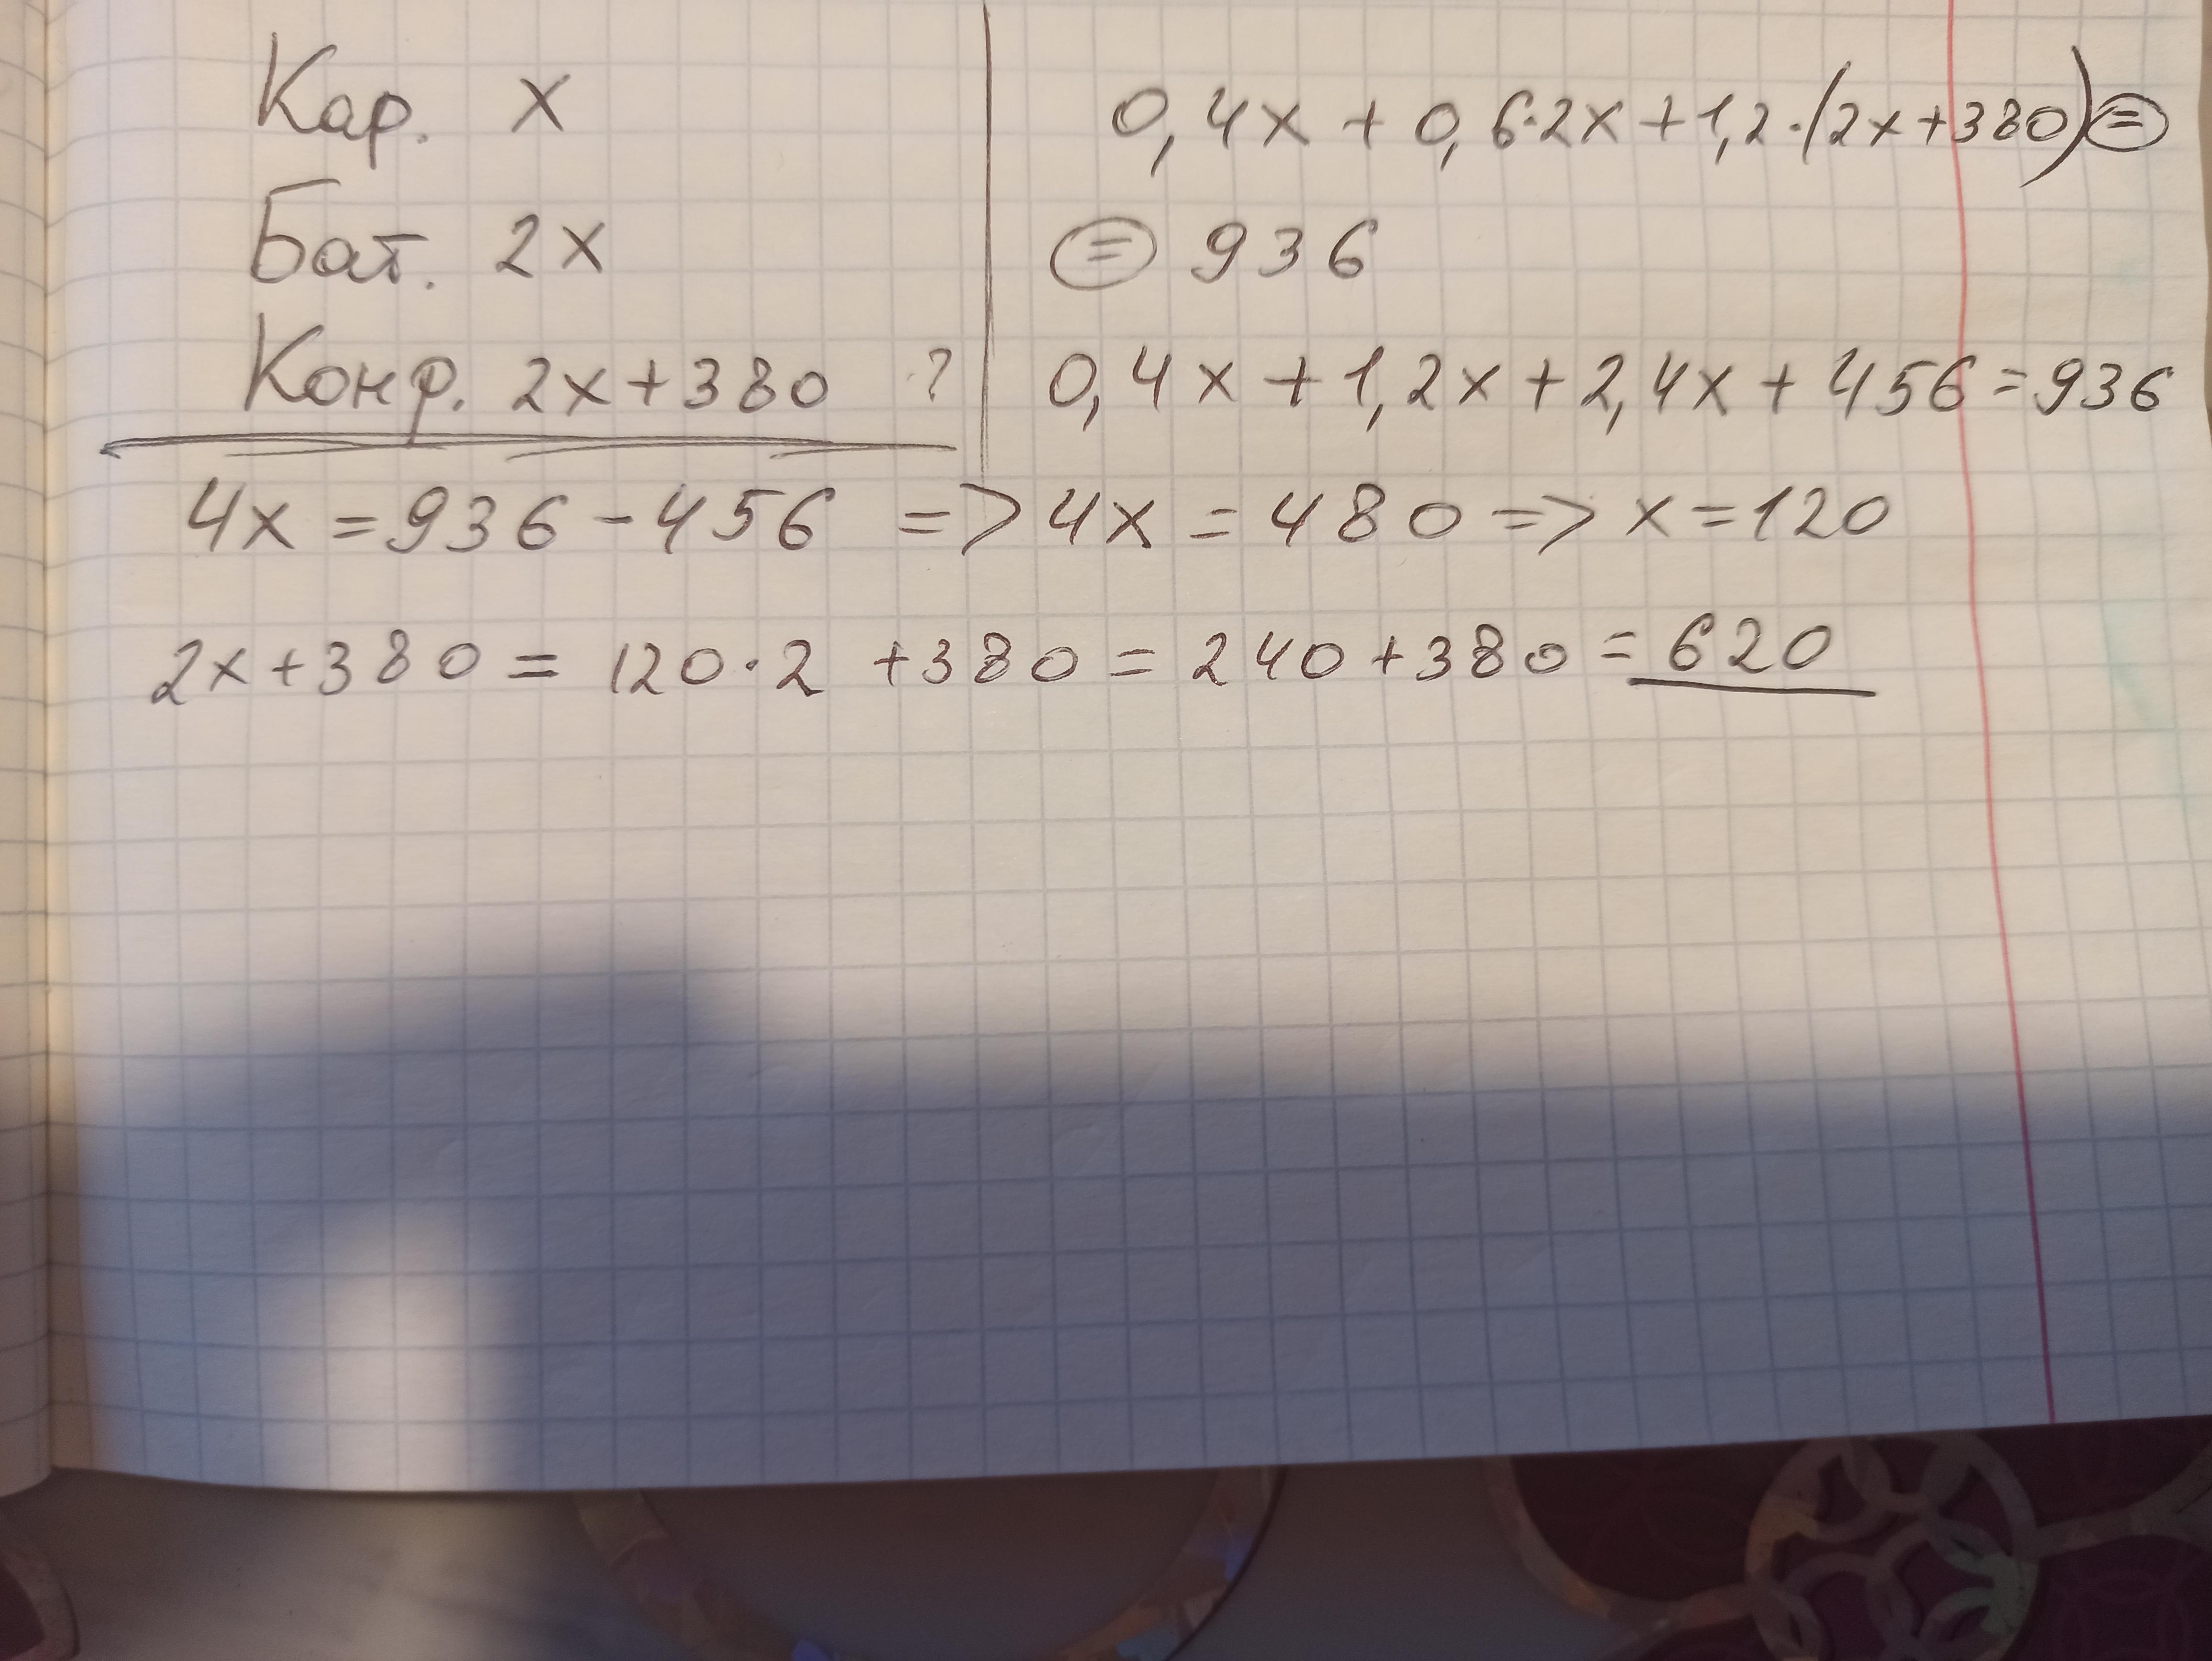 Кар. х
Бат. 2х
Конф. 2х+380 ?
0,4х + 0,6·2х+1,2·(2х+380)=
= 936
0,4х+1,2х+2,4х+456=936
4х=936-456 => 4х=480 => х=120
2х+380= 120·2 +380=240+380=620